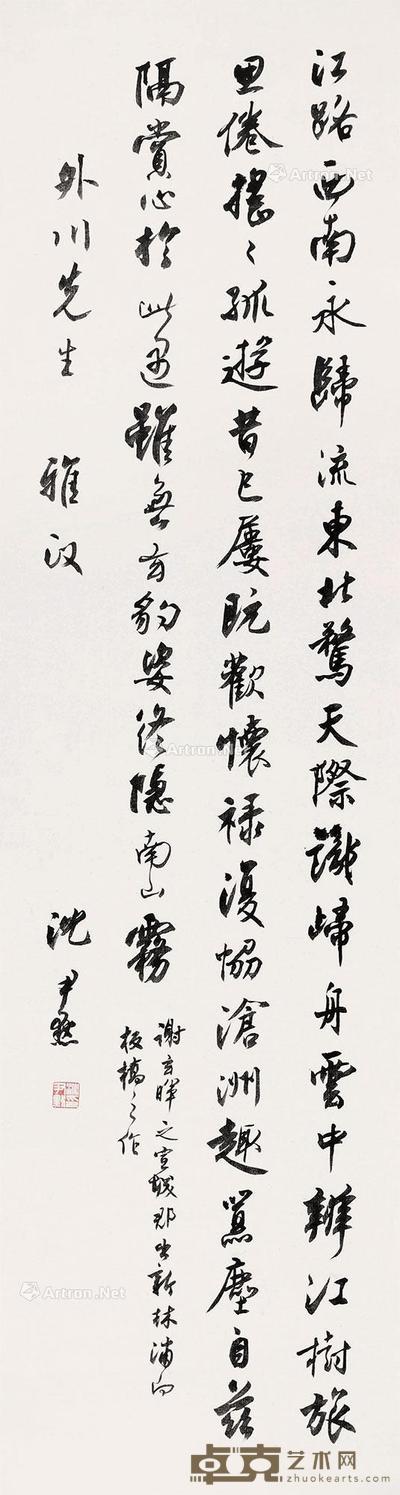 江路西南永歸流東北騖天際識歸舟雲中辨江樹旅
思倦搖〻孤遊昔已屢既歡懷祿復協滄洲趣囂塵自茲
隔賞心於此遇雖無玄豹姿終隱南山霧
謝玄暉之宣城郡出新林浦向
板橋之作
外川先生 雅政 沈尹默
Artron.Net
Artron.Net
Artron.Net
Artron.Net
Artron.Net
Artron.Net
卓克艺术网
zhuokearts.com